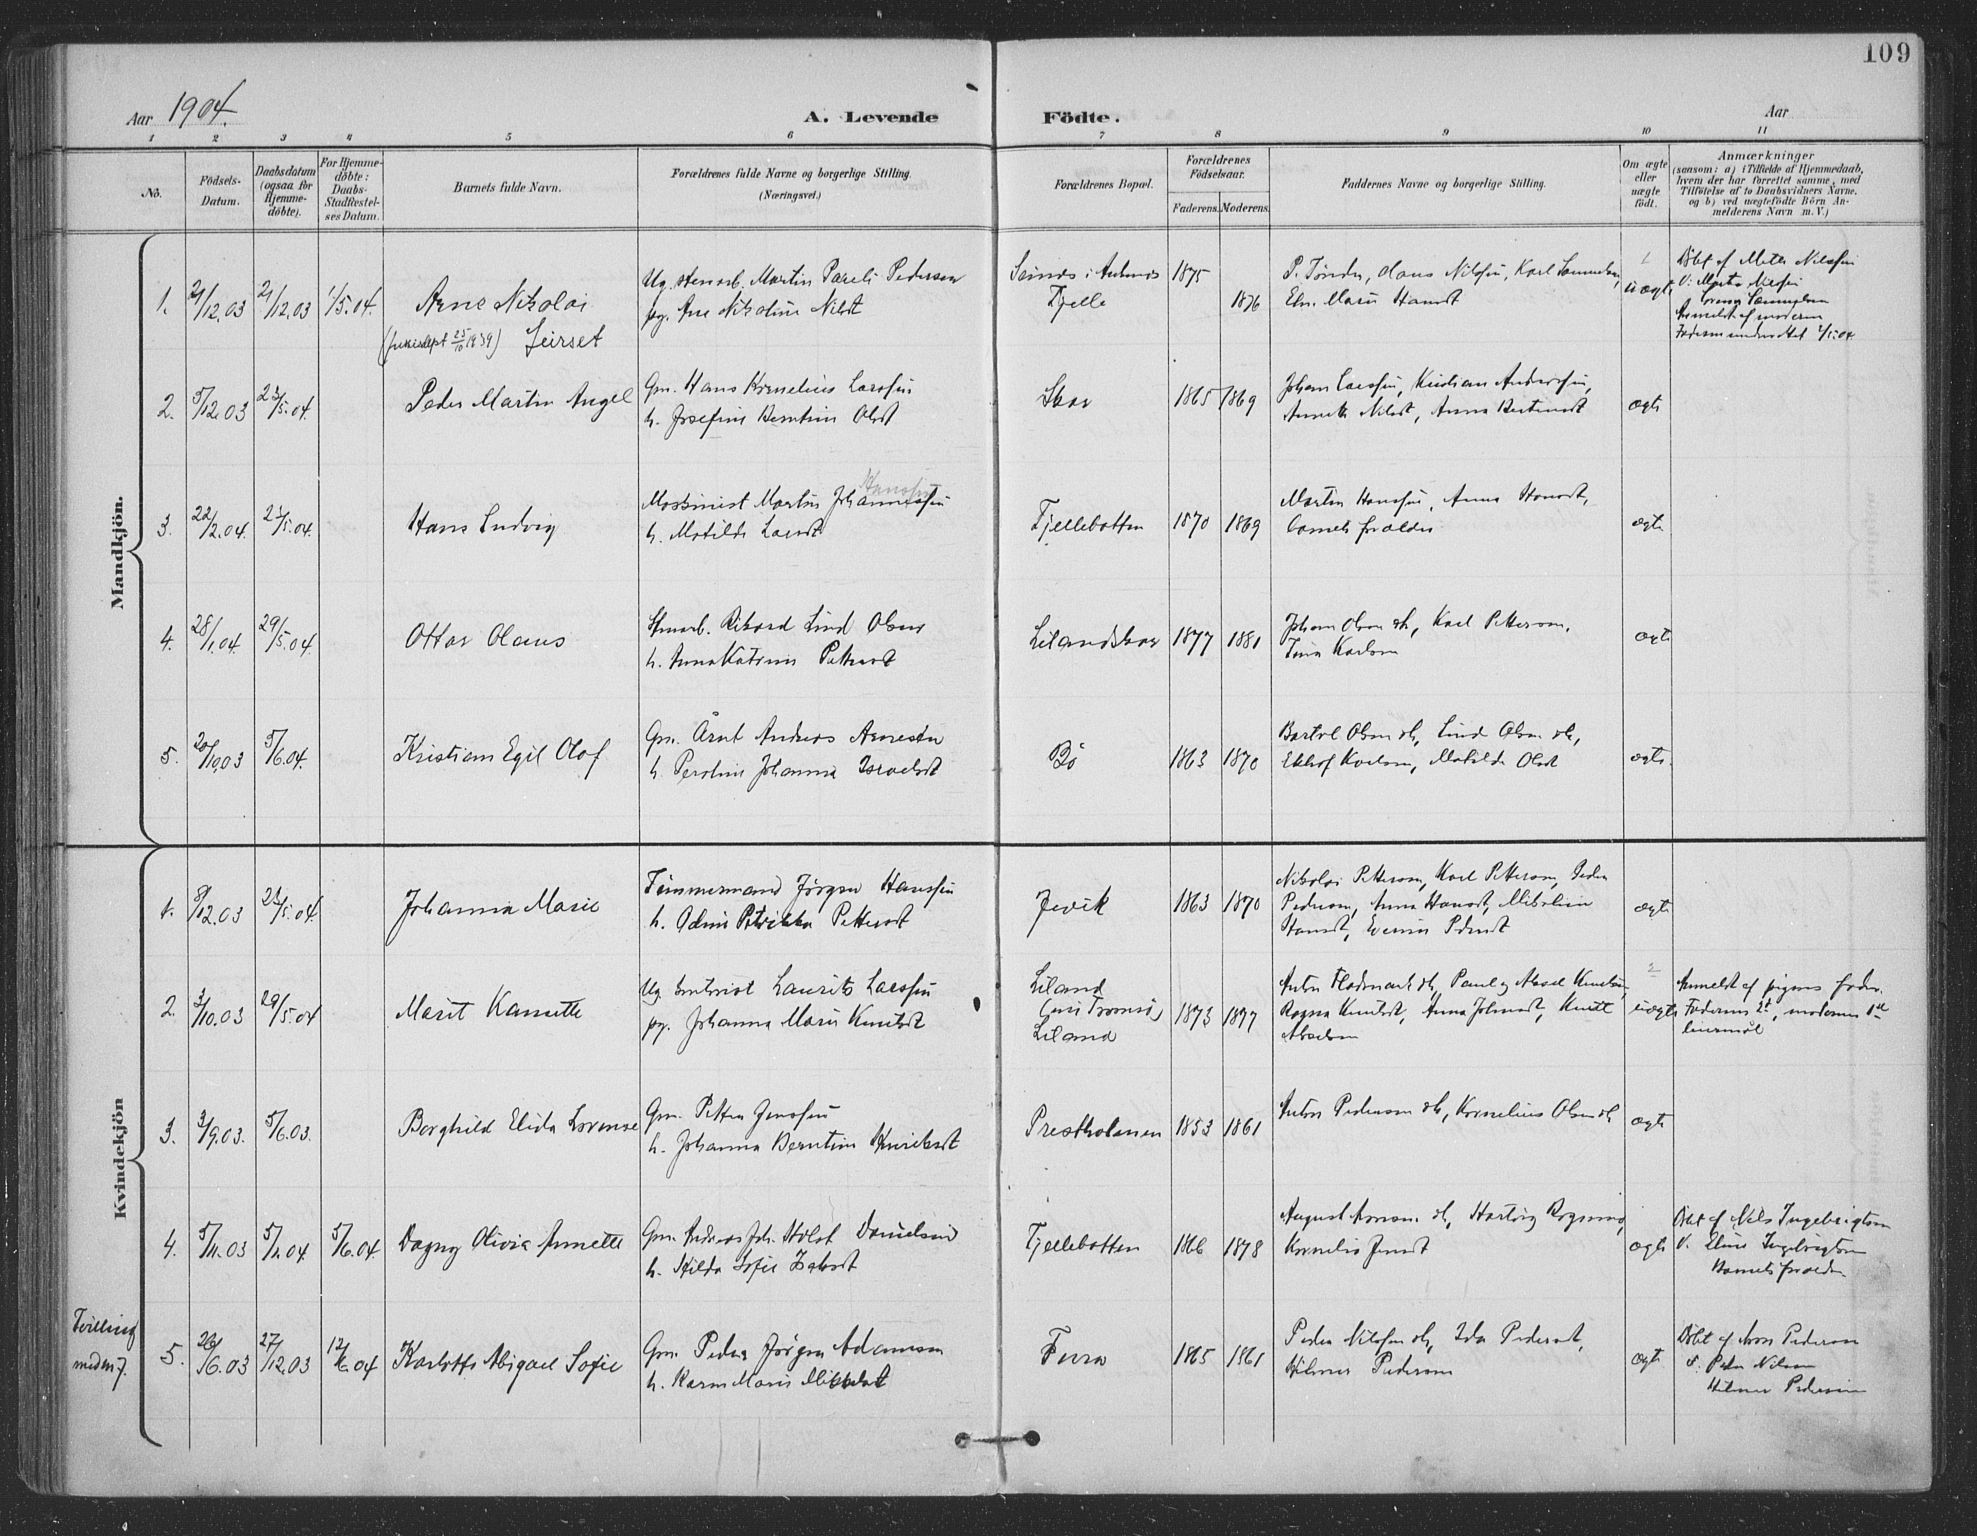 109
Aar 1904. A. Levende Födte. Aar
1 2 3 4 5 6 7 8 9 10 11
No.
Födsels-Datum.
Daabsdatum (ogsaa for Hjemme-döbte).
For Hjemme-döbte: Daabs-Stadfæstel-ses Datum.
Barnets fulde Navn.
Forældrenes fulde Navne og borgerlige Stilling. (Næringsvei.)
Forældrenes Bopæl.
Forældrenes Födselsaar.
Faderens. Moderens.
Faddernes Navne og borgerlige Stilling.
Om ægte eller uægte födt.
Anmærkninger
(saasom: a) i Tilfælde af Hjemmedaab,
hvem der har forrettet samme, med
Tilföielse af to Daabsvidners Navne.
og b) ved uægtefödte Börn An-
melderens Navn m. V.)
Mandkjön.
1. 21/12.03 1/5.04. Arne Nikolai
Ug. stenarb. Martin Pareli Pedersen
pg. Ane Nikoline Nilsdt
Fjelle 1875 1876
P. Tønder, Hans Nilssen, Karl
uægte
Døbt af
Anmeldt af moderen
(Justisdept 25/10 1939) Jeirset
2. 5/12.03 23/5.04. Peder Martin Angel
Gm. Hans Kornelius Larssen
h. Josefine Berntine Olsdt
Skar 1865 1869
Johan Larssen, Kristian Anderssen,
Annette Nilsdt, Anna Berntsdt
ægte
3. 22/2.04. 23/5.04. Hans Ludvig
Hanssen
Maskinist Martin Johannessen
h. Matilde Larsdt
Fjellebotten 1870 1869
Martin Hanssen, Anna Hansdt,
barnets forældre
ægte
4. 28/1.04. 29/5.04. Ottar Olaus
Stenarb. Rikard Lind Olsen
h. Anna Katrine Pettersdt
Lilandskar 1877 1881
Johan Olsen, Karl Pettersen,
Tina Karlsen
ægte
5. 20/10.03 5/6.04. Kristian Egil Olaf
Gm. Arnt Andreas Arnesen
h. Peroline Johanna Israelsdt
Bö 1863 1870
Bartol Olsen, Lind Olsen,
Matilde Olsdt
ægte.
Kvindekjön
1. 8/12.03 23/5.04. Johanna Marie
Tømmermand Jørgen Hanssen
h. Odine Petrikka Pettersdt
Jevik 1863 1870
Nikolai Pettersen, Karl Pettersen, Peder
Pedersen, Anna Hansdt,
Hansdt, Pedersdt
ægte
2. 3/10.03 29/5.04 Marit Kanutte
Ug. Laurits Larssen
pg. Johanna Marie Knutsdt
Liland
Tromsø
Liland
1873 1877
Ragna Knutsdt, Anna Johnsdt, Knut
Akselsen
uægte
Anmeldt af pigens fader.
Faderens 2det, moderens 1ste
leiermål
3. 3/9.03. 5/6.03. Borghild Elida Lovense
Gm. Petter Jenssen
h. Johanna Berntine Henriksdt
Prestholmen 1853 1861
Anton Pedersen, Kornelius Olsen
ægte
4. 5/11.03 5/1.04 5/6.04. Dagny Olivia Annette
Gm. Andreas Joh. Holst Danielsen
h. Hilda Sofie Isaksdt
Fjellebotten 1866 1878
August Hartvig Rognmo,
Kornelia Jensdt
ægte
Døbt af Nils Ingebrigtsen
V. Eline Ingebrigtsen
Barnets forældre
Tvilling
med no 7.
5. 26/6.03 27/12.03 12/6.04 Karlotte Abigael Sofie
Gm. Peder Jørgen Adamsen
h. Karen Marie Mikkelsdt
Furu 1865 1861
Peder Nilssen, Ida Pedersdt,
Hilmer Pedersen
ægte
Døbt af Pedersen
V. Peder Nilssen
Hilmer Pedersen